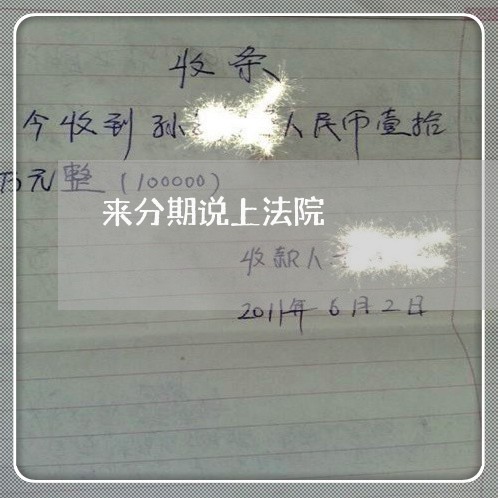 收条
今收到 孙 人民币壹拾
万元整 (100000)
来分期说上法院
收款人
2011年6月2日